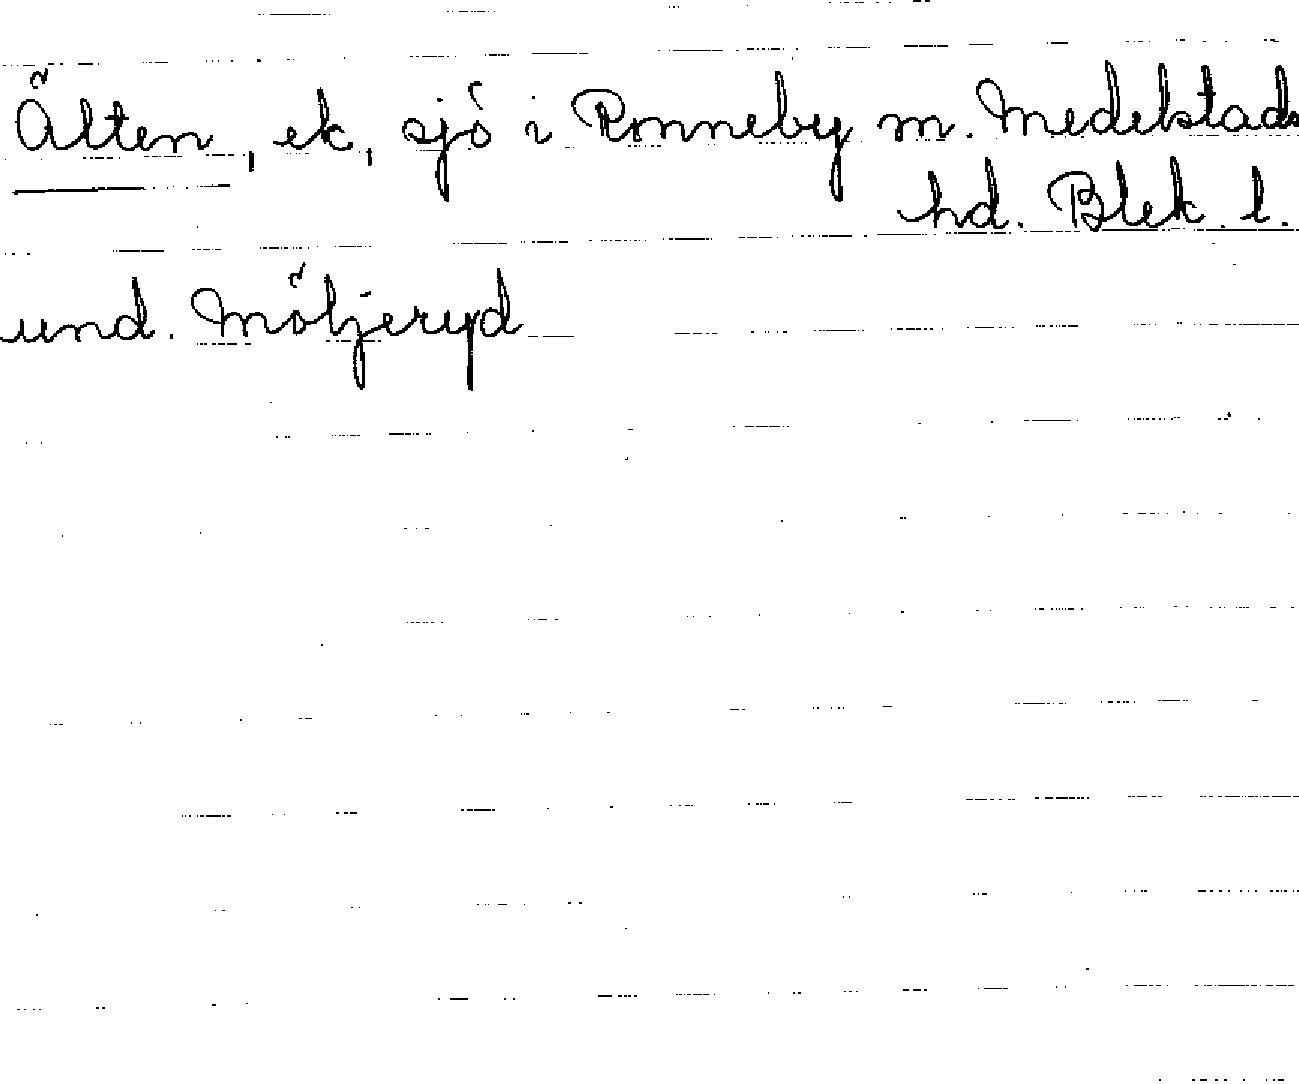 Älten, ek, sjö i Ronneby m. Medelstads
hd. Blek. l.
und. Möljeryd